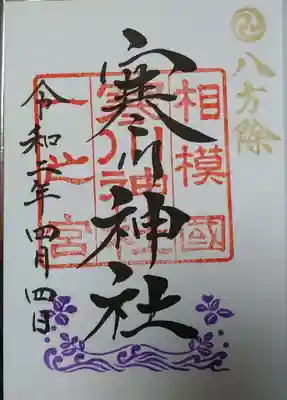 八方除
相模國
寒川神社
寒川神社
一之宮
令和六年四月四日